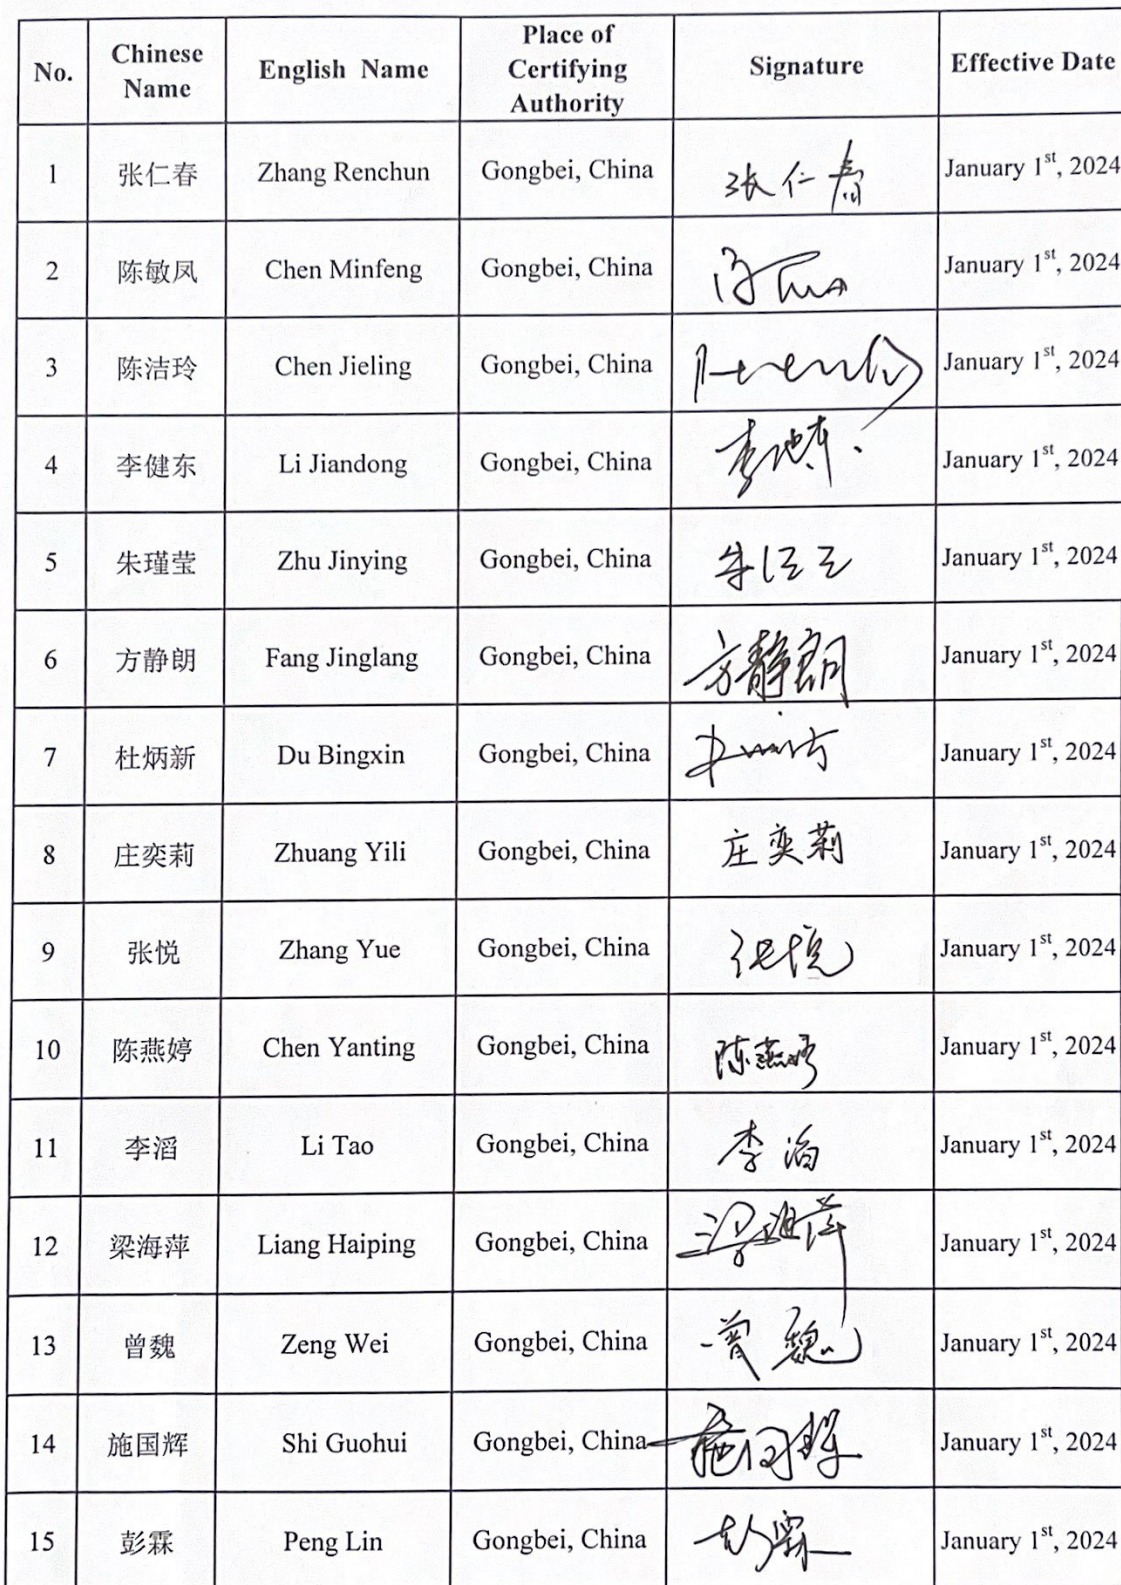 No. Chinese Name English Name Place of Certifying Authority Signature Effective Date
1 张仁春 Zhang Renchun Gongbei, China 张仁春 January 1st, 2024
2 陈敏凤 Chen Minfeng Gongbei, China January 1st, 2024
3 陈洁玲 Chen Jieling Gongbei, China January 1st, 2024
4 李健东 Li Jiandong Gongbei, China January 1st, 2024
5 朱瑾莹 Zhu Jinying Gongbei, China January 1st, 2024
6 方静朗 Fang Jinglang Gongbei, China 方静朗 January 1st, 2024
7 杜炳新 Du Bingxin Gongbei, China January 1st, 2024
8 庄奕莉 Zhuang Yili Gongbei, China 庄奕莉 January 1st, 2024
9 张悦 Zhang Yue Gongbei, China 张悦 January 1st, 2024
10 陈燕婷 Chen Yanting Gongbei, China 陈燕婷 January 1st, 2024
11 李滔 Li Tao Gongbei, China 李滔 January 1st, 2024
12 梁海萍 Liang Haiping Gongbei, China January 1st, 2024
13 曾魏 Zeng Wei Gongbei, China 曾魏 January 1st, 2024
14 施国辉 Shi Guohui Gongbei, China January 1st, 2024
15 彭霖 Peng Lin Gongbei, China January 1st, 2024